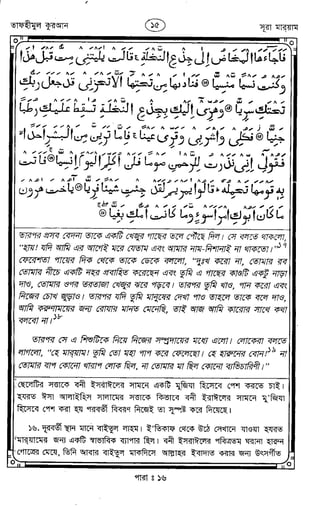 তাফহীমুল কুরআন
১৫
সূরা মারয়াম
فَاَجَآءَهَا الْمَخَاضُ اِلٰى جِذْعِ النَّخْلَةِ ۚ قَالَتْ يٰلَيْتَنِىْ مِتُّ قَبْلَ هٰذَا
وَكُنْتُ نَسْيًا مَّنْسِيًّا ۞ فَنَادٰىهَا مِنْ تَحْتِهَآ اَلَّا تَحْزَنِىْ قَدْ جَعَلَ رَبُّكِ
تَحْتَكِ سَرِيًّا ۞ وَهُزِّىْۤ اِلَيْكِ بِجِذْعِ النَّخْلَةِ تُسٰقِطْ عَلَيْكِ رُطَبًا
جَنِيًّا ۞ فَكُلِىْ وَاشْرَبِىْ وَقَرِّىْ عَيْنًا ۚ فَاِمَّا تَرَيِنَّ مِنَ الْبَشَرِ اَحَدًا ۙ
فَقُوْلِىْۤ اِنِّىْ نَذَرْتُ لِلرَّحْمٰنِ صَوْمًا فَلَنْ اُكَلِّمَ الْيَوْمَ اِنْسِيًّا ۞ فَاَتَتْ
بِهٖ قَوْمَهَا تَحْمِلُهٗ ؕ قَالُوْا يٰمَرْيَمُ لَقَدْ جِئْتِ شَيْئًا فَرِيًّا ۞ يٰٓاُخْتَ هٰرُوْنَ
مَا كَانَ اَبُوْكِ امْرَاَ سَوْءٍ وَّمَا كَانَتْ اُمُّكِ بَغِيًّا ۞
তারপর প্রসব বেদনা তাকে একটি খেজুর গাছের তলে পৌঁছে দিল। সে বলতে থাকলো,
"হায়! যদি আমি এর আগেই মরে যেতাম এবং আমার নাম-নিশানাই না থাকতো।"১৭
ফেরেশতা পায়ের দিক থেকে তাকে ডেকে বললো, "দুঃখ করো না, তোমার রব
তোমার নীচে একটি নহর প্রবাহিত করেছেন এবং তুমি এ গাছের কাণ্ডটি একটু নাড়া
দাও, তোমার ওপর তরতাজা খেজুর ঝরে পড়বে। তারপর তুমি খাও, পান করো এবং
নিজের চোখ জুড়াও। তারপর যদি তুমি মানুষের দেখা পাও তাহলে তাকে বলে দাও,
আমি করুণাময়ের জন্য রোযার মানত মেনেছি, তাই আজ আমি কারোর সাথে কথা
বলবো না।"১৮
তারপর সে এ শিশুটিকে নিয়ে নিজের সম্প্রদায়ের মধ্যে এলো। লোকেরা বলতে
লাগলো, "হে মারয়াম! তুমি তো মহা পাপ করে ফেলেছো। হে হারুনের বোন!১৯ না
তোমার বাপ কোনো খারাপ লোক ছিল, না তোমার মা ছিল কোনো ব্যভিচারিণী।"
ছেলেটির সত্তাকে বনী ইসরাঈলের সামনে একটি মুজিযা হিসেবে পেশ করতে চাই।
হযরত ঈসা আলাইহিস সালামের সত্তাকে কিভাবে বনী ইসরাঈলের সামনে মু'জিযা
হিসেবে পেশ করা হয় পরবর্তী বিবরণ নিজেই তা সুস্পষ্ট করে দিয়েছে।
১৬. দূরবর্তী স্থান মানে বাইতুল লাহম। ই'তিকাফ থেকে উঠে সেখানে যাওয়া হযরত
মারয়ামের জন্য একটি স্বাভাবিক ব্যাপার ছিল। বনী ইসরাঈলের পবিত্রতম ঘরানা হারুন
গোত্রের মেয়ে, যিনি আবার বাইতুল মাকদিসে আল্লাহর ইবাদাত করার জন্য উৎসর্গীত
পারা : ১৬